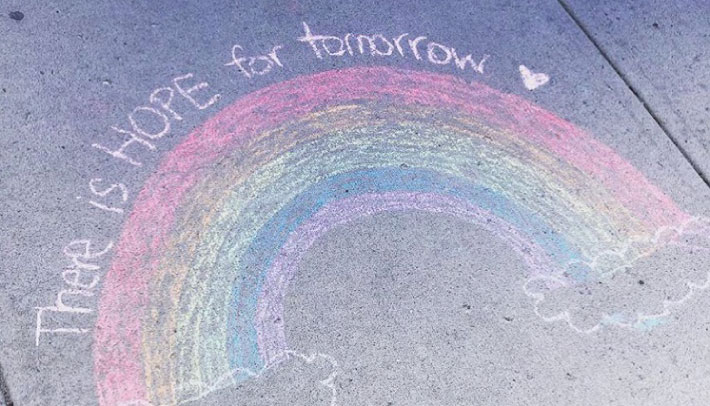 There is HOPE for tomorrow